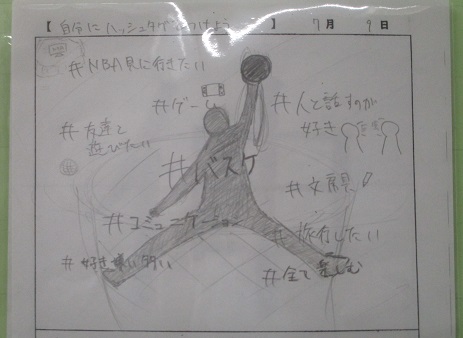 【自分にハッシュタグをつけよう】 7月9日
#NBA見に行きたい
#ゲーム
#人と話すのが
好き
#友達と
遊びたい
#バスケ
#文房具
#コミュニケーション
#旅行したい
#好き嫌い多い
#全て楽しむ